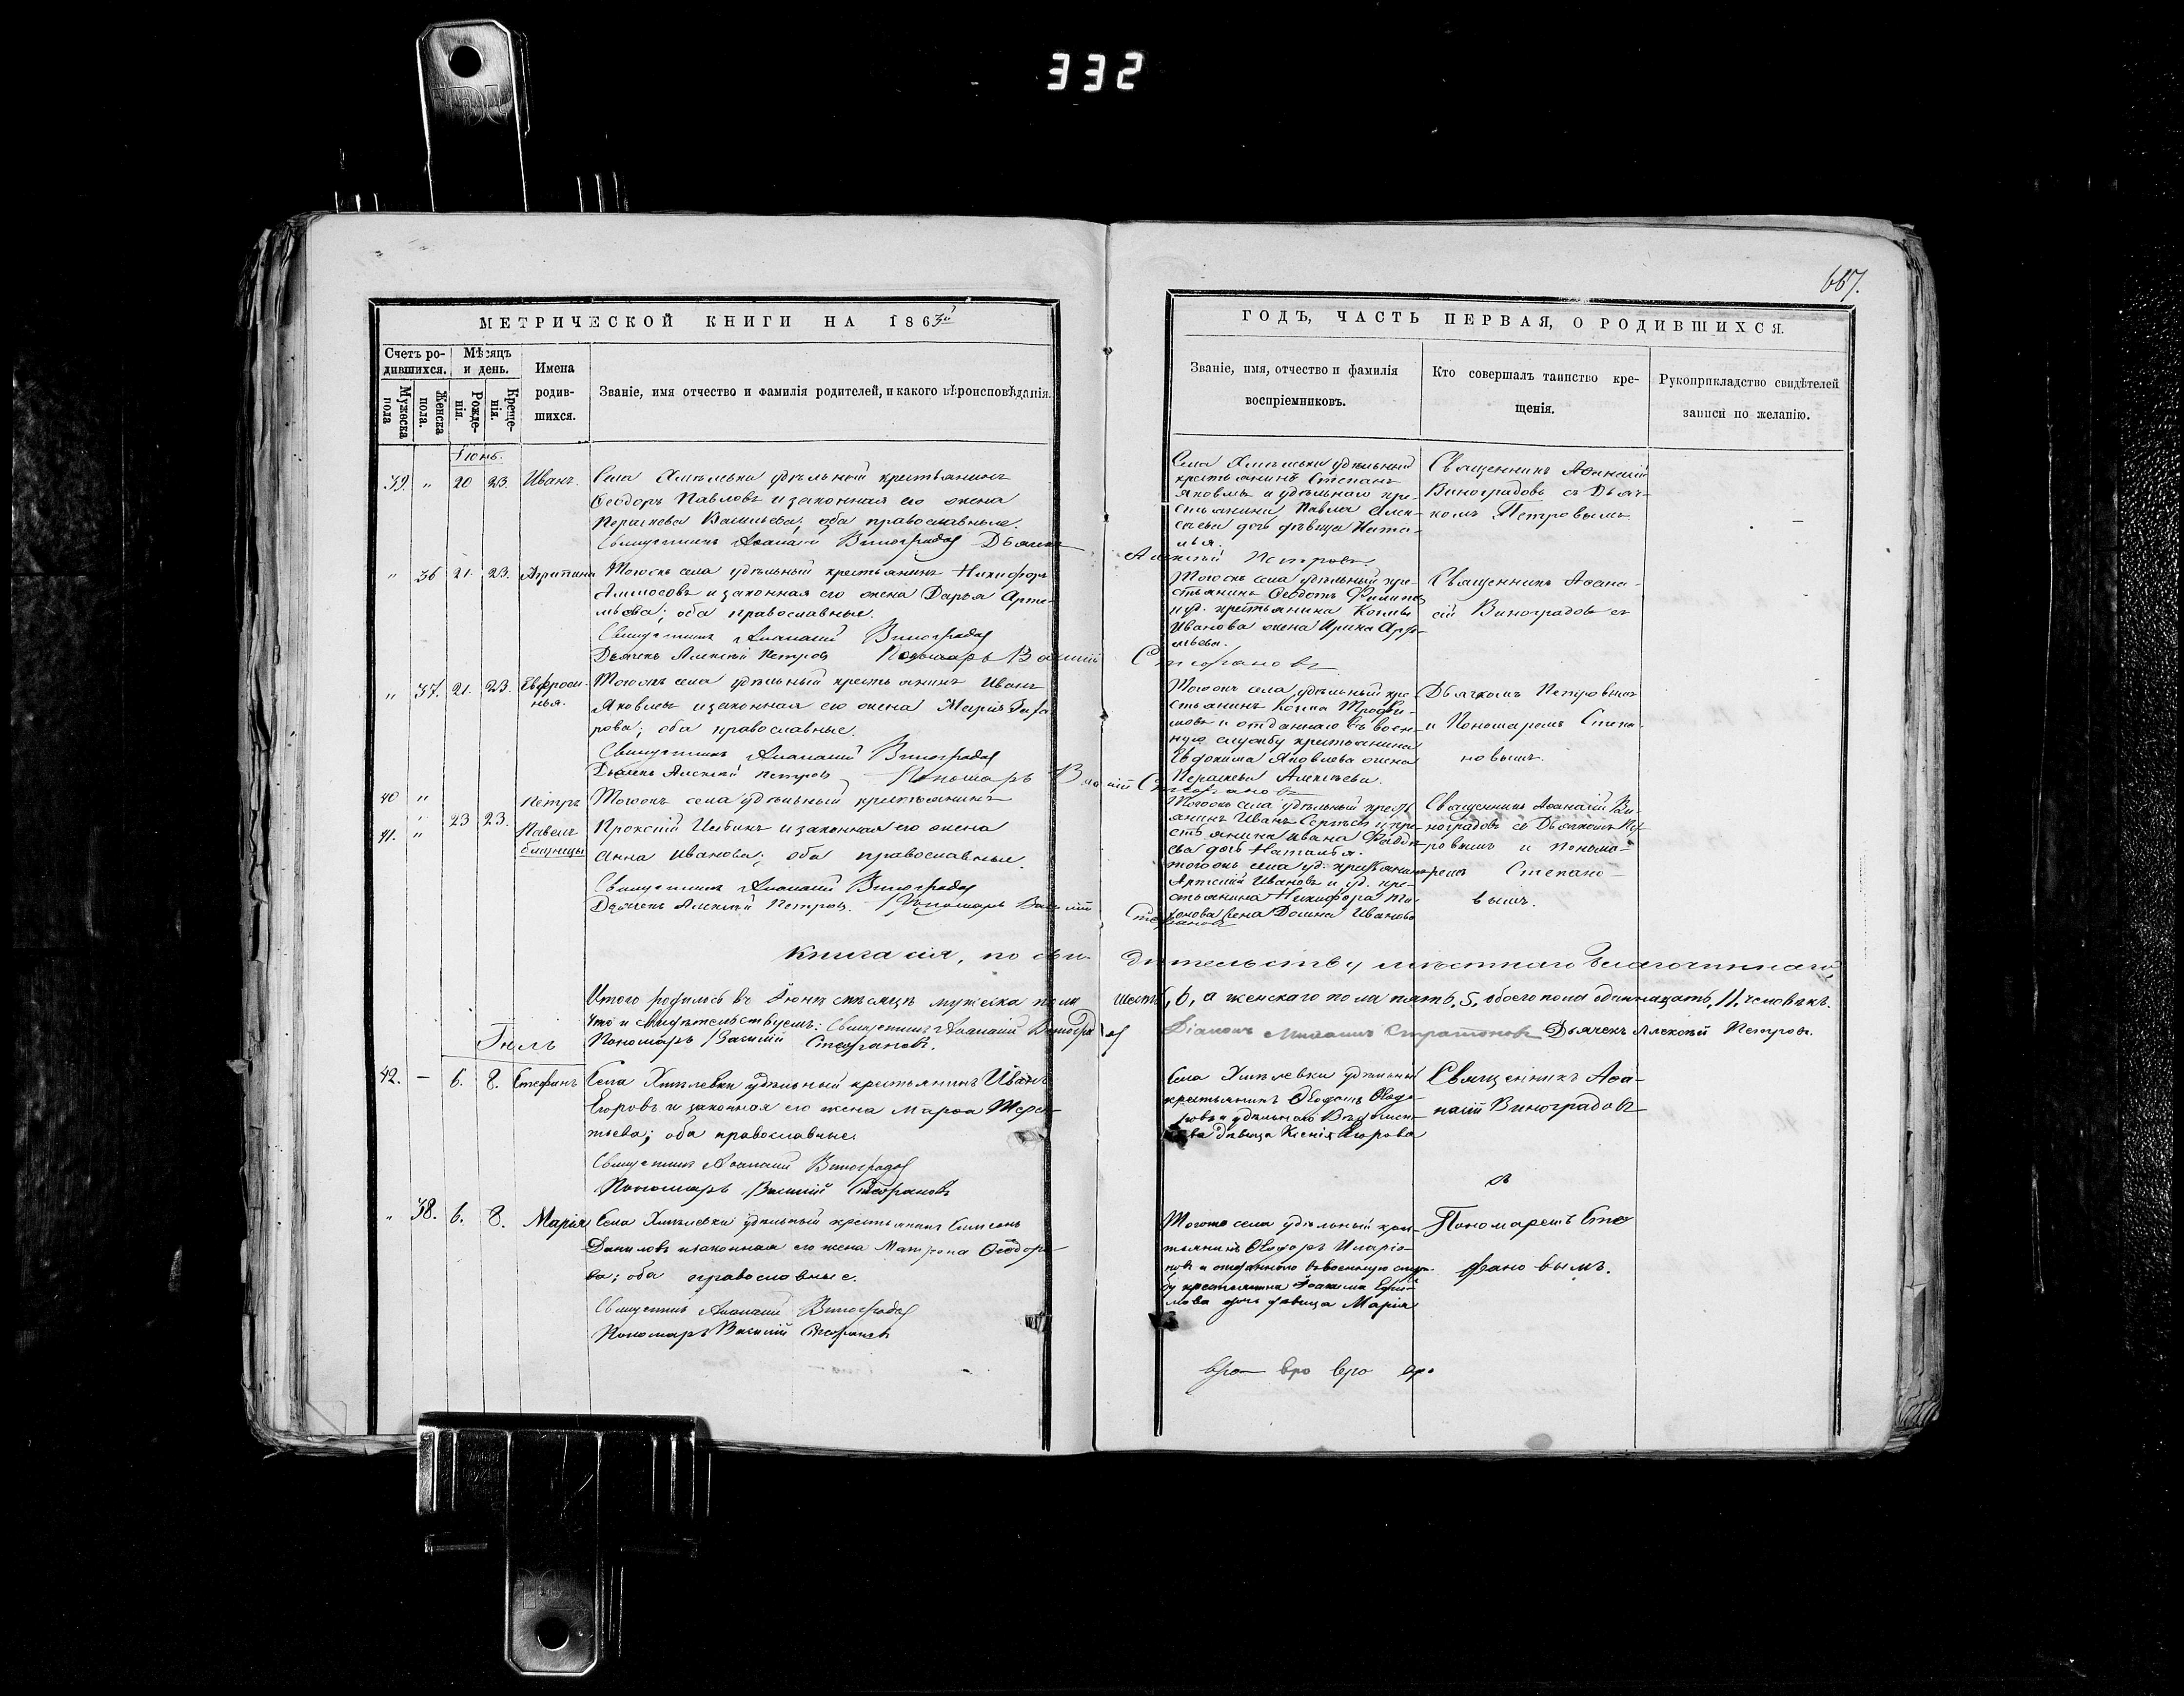 332
667.
МЕТРИЧЕСКОЙ КНИГИ НА 1863й
Счетъ ро-
дившихся.
Мужеска
пола
Женска
пола.
Мѣсяцъ
и день.
Рожде-
нія.
Креще-
нія.
Имена
родив-
шихся.
Званіе, имя отчество и фамилія родителей, и какого вѣроисповѣданія.
ГОДЪ, ЧАСТЬ ПЕРВАЯ, О РОДИВШИХСЯ.
Званіе, имя, отчество и фамилія
воспріемниковъ.
Кто совершалъ таинство кре-
щенія.
Рукоприкладство свидѣтелей
записи по желанію.
Іюнь.
39. " 20 23. Иванъ.
Села Хмѣлевки удѣльный крестьянинъ
Ѳеодоръ Павловъ и законная его жена
Параскева Васильева; оба православные.
Священникъ Аѳанасій Виноградовъ Дьячекъ
Алексѣй Петровъ.
Села Хмѣлевки удѣльный
крестьянинъ Степанъ
Яковлевъ и удѣльнаго кре-
стьянина Павла Алек-
сѣева дочь дѣвица Ната-
лья.
Священникъ Аѳанасій
Виноградовъ съ Дьяч-
комъ Петровымъ.
" 36 21. 23. Агрипина
Тогожъ села удѣльный крестьянинъ Никифоръ
Аммосовъ и законная его жена Дарья Арте-
мьева; оба православные.
Священникъ Аѳанасій Виноградовъ
Дьячекъ Алексѣй Петровъ Пономарь Василій Стефановъ
Тогожъ села удѣльный кре-
стьянинъ Ѳеодотъ Филиповъ
и уд. крестьянина Козьмы
Иванова жена Ирина
Священникъ Аѳана-
сій Виноградовъ съ
" 37. 21. 23. Евфроси-
нья.
Тогожъ села удѣльный крестьянинъ Иванъ
Яковлевъ и законная его жена Марія
рова; оба православные.
Священникъ Аѳанасій Виноградовъ
Дьячекъ Алексѣй Петровъ Пономарь Василій Стефановъ
Тогожъ села удѣльный кре-
стьянинъ Козма Трофи-
мовъ и отданнаго въ воен-
ную службу крестьянина
Евдокима Яковлева жена
Параскева Алексѣева.
Дьячкомъ Петровымъ
и Пономаремъ Стефа-
новымъ.
40 " Петръ
23 23.
41. " Павелъ
близнецы
Тогожъ села удѣльный крестьянинъ
и законная его жена
Анна Иванова; оба православные.
Священникъ Аѳанасій Виноградовъ
Дьячекъ Алексѣй Петровъ. Пономарь Василій Стефановъ
Тогожъ села удѣльный кресть-
янинъ Иванъ Сергѣевъ и кре-
стьянина Ивана
ева дочь Наталья.
тогожъ села уд. крестьянинъ
Артемій Ивановъ и уд. кре-
стьянина Никифора Ти-
хонова жена Домна Иванова
Священникъ Аѳанасій Ви-
ноградовъ съ Дьячкомъ Пет-
ровымъ и Понома-
ремъ Стефано-
вымъ.
Книга сія, по свидѣтельству мѣстнаго благочиннаго
Итого родилось въ Іюнѣ мѣсяцѣ мужеска пола шесть, 6, а женскаго пола пять, 5, обоего пола одиннадцать, 11, человѣкъ.
Что и свидѣтельствуемъ: Священникъ Аѳанасій Виноградовъ Діаконъ Михаилъ Стратоновъ Дьячекъ Алексѣй Петровъ.
Пономарь Василій Стефановъ.
Іюль
42. — 6. 8. Стефанъ
Села Хмѣлевки удѣльный крестьянинъ Иванъ
Егоровъ и законная его жена Марѳа Терен-
тьева; оба православные.
Священникъ Аѳанасій Виноградовъ
Пономарь Василій Стефановъ
Села Хмѣлевки удѣльный
крестьянинъ Ѳеодотъ Ѳедо-
ровъ и удѣльнаго
дѣвица Ксенія Егорова
Священникъ Аѳа-
насій Виноградовъ
съ
" 38. 6. 8. Марія
Села Хмѣлевки удѣльный крестьянинъ Симеонъ
Даниловъ и законная его жена Матрона Ѳеодоро-
ва; оба православные.
Священникъ Аѳанасій Виноградовъ
Пономарь Василій Стефановъ
Тогоже села удѣльный крес-
тьянинъ Ѳеодоръ Иларіо-
новъ и отданнаго въ военную служ-
бу крестьянина Іоакима Ефи-
мова дочь дѣвица Марія
Пономаремъ Сте-
фановымъ.